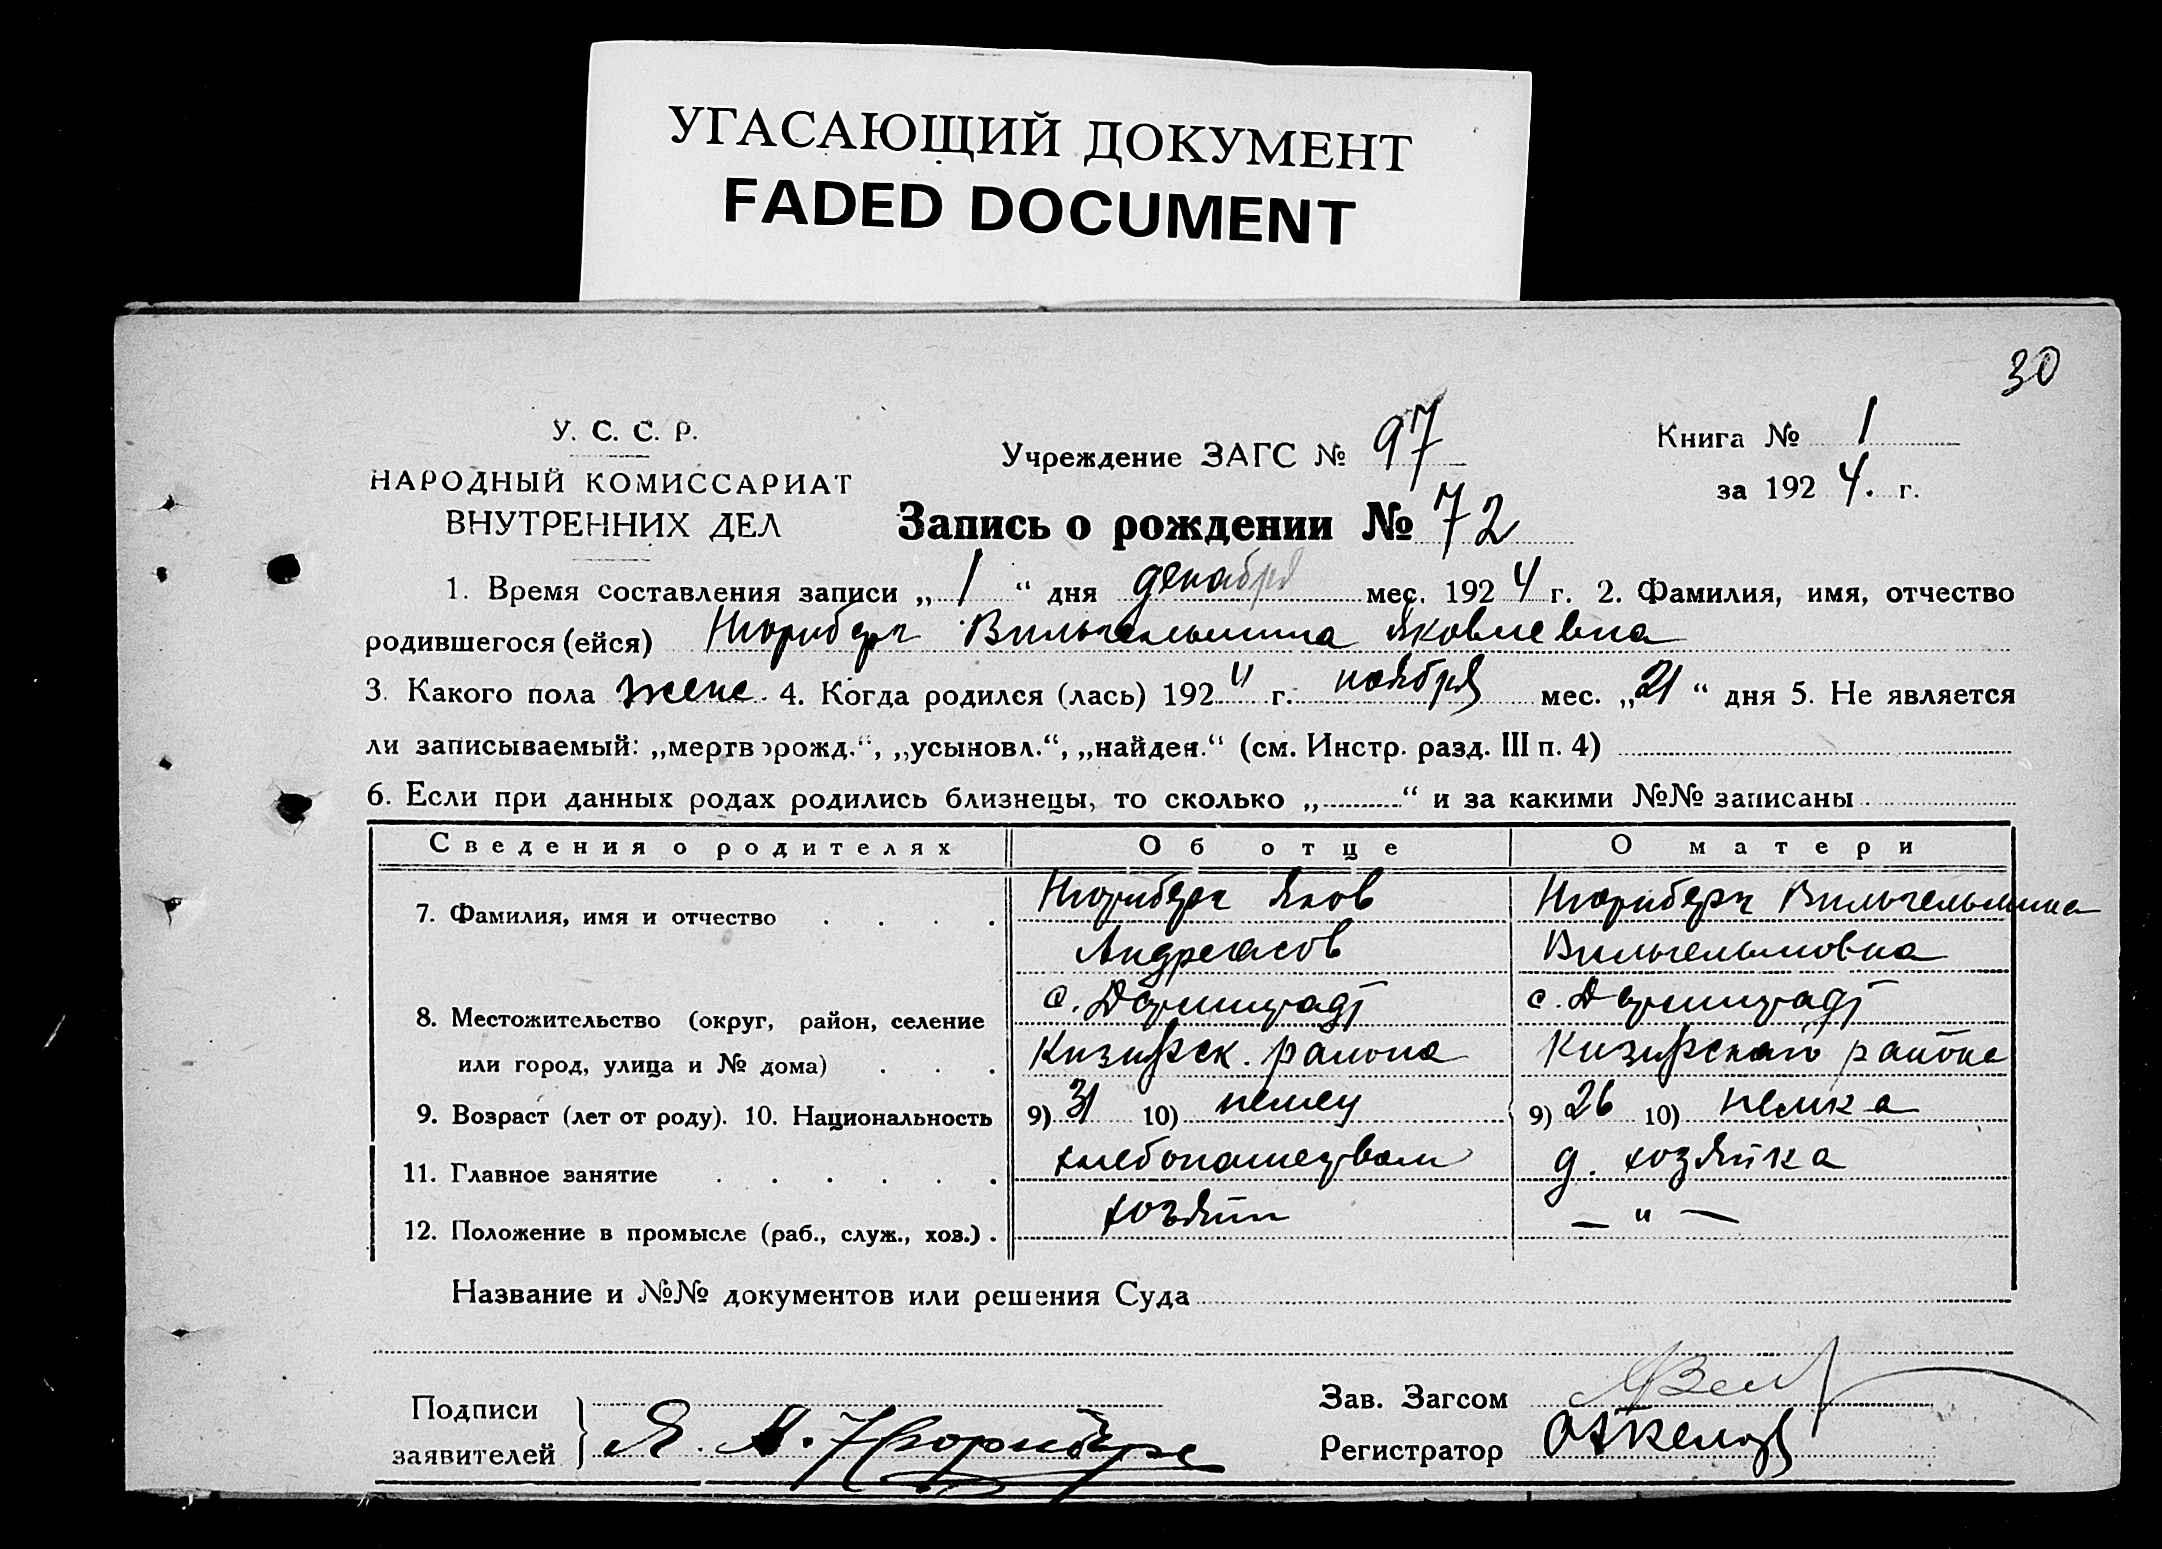 УГАСАЮЩИЙ ДОКУМЕНТ
FADED DOCUMENT
30
У. С. С. Р.
НАРОДНЫЙ КОМИССАРИАТ
ВНУТРЕННИХ ДЕЛ
Учреждение ЗАГС № 97
Книга № 1
за 1924. г.
Запись о рождении № 72
1. Время составления записи „1“ дня декабря мес. 1924 г. 2. Фамилия, имя, отчество
родившегося (ейся) Нюрнберг Вильгельмина Яковлевна
3. Какого пола женс. 4. Когда родился (лась) 1924 г. ноября мес. „21“ дня 5. Не является
ли записываемый: „мертворожд.“, „усыновл.“, „найден.“ (см. Инстр. разд. III п. 4)
6. Если при данных родах родились близнецы, то сколько „ “ и за какими №№ записаны
Сведения о родителях Об отце О матери
7. Фамилия, имя и отчество Нюрнберг Яков Нюрнберг Вильгельмина
Андреасов Вильгельмовна
8. Местожительство (округ, район, селение с. Дармштадт с. Дармштадт
или город, улица и № дома) района района
9. Возраст (лет от роду). 10. Национальность 9) 31 10) немец 9) 26 10) немка
11. Главное занятие хлебопашеством д. хозяйка
12. Положение в промысле (раб., служ., хоз.) хозяин — " —
Название и №№ документов или решения Суда
Подписи
заявителей Я. А. Нюрнберг
Зав. Загсом
Регистратор